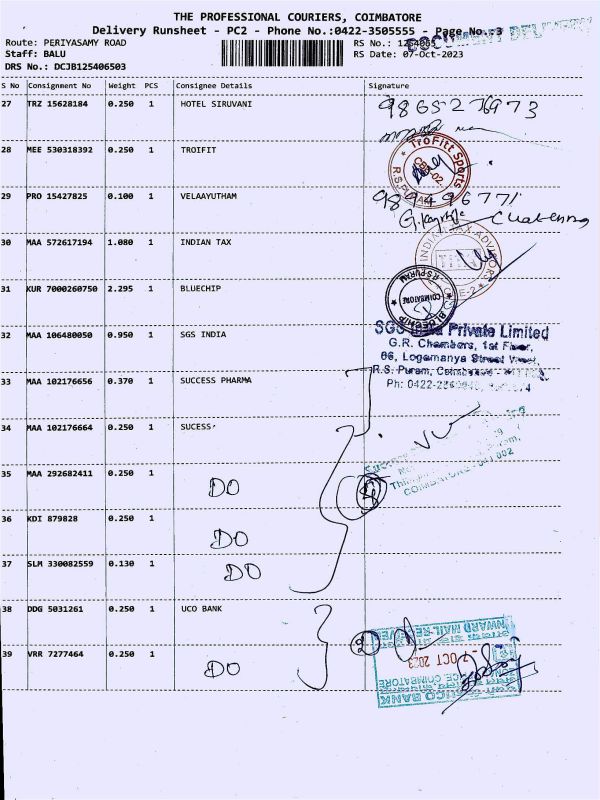 THE PROFESSIONAL COURIERS, COIMBATORE
Delivery Runsheet - PC2 - Phone No.:0422-3505555 - Page No.:3
Route: PERIYASAMY ROAD
RS No.:
Staff: BALU
RS Date: 07-Oct-2023
DRS No.: DCJB125406503
S No Consignment No Weight PCS Consignee Details Signature
27 TRZ 15628184 0.250 1 HOTEL SIRUVANI
28 MEE 530318392 0.250 1 TROIFIT
TroFitt Sports
R.S.PURAM
29 PRO 15427825 0.100 1 VELAAYUTHAM
30 MAA 572617194 1.080 1 INDIAN TAX
INDIAN TAX ADVISORS
31 KUR 7000260750 2.295 1 BLUECHIP
R.S.PURAM
COIMBATORE
BLUECHIP
32 MAA 106480050 0.950 1 SGS INDIA
SGS India Private Limited
G.R. Chambers, 1st Floor,
66, Logamanya Street West,
R.S. Puram, Coimbatore -
Ph: 0422-
33 MAA 102176656 0.370 1 SUCCESS PHARMA
34 MAA 102176664 0.250 1 SUCESS
COIMBATORE - 641 002
35 MAA 292682411 0.250 1 DO
36 KDI 879828 0.250 1 DO
37 SLM 330082559 0.130 1 DO
38 DDG 5031261 0.250 1 UCO BANK
2
INWARD MAIL RECEIVED
-7 OCT 2023
COIMBATORE
UCO BANK
39 VRR 7277464 0.250 1 DO